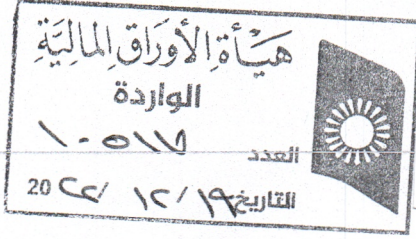 هَيْأَةِ الأَوْرَاقِ المَالِيَّةِ
الواردة
العدد
التاريخ ١٩ / ١٢ / 20٢٢